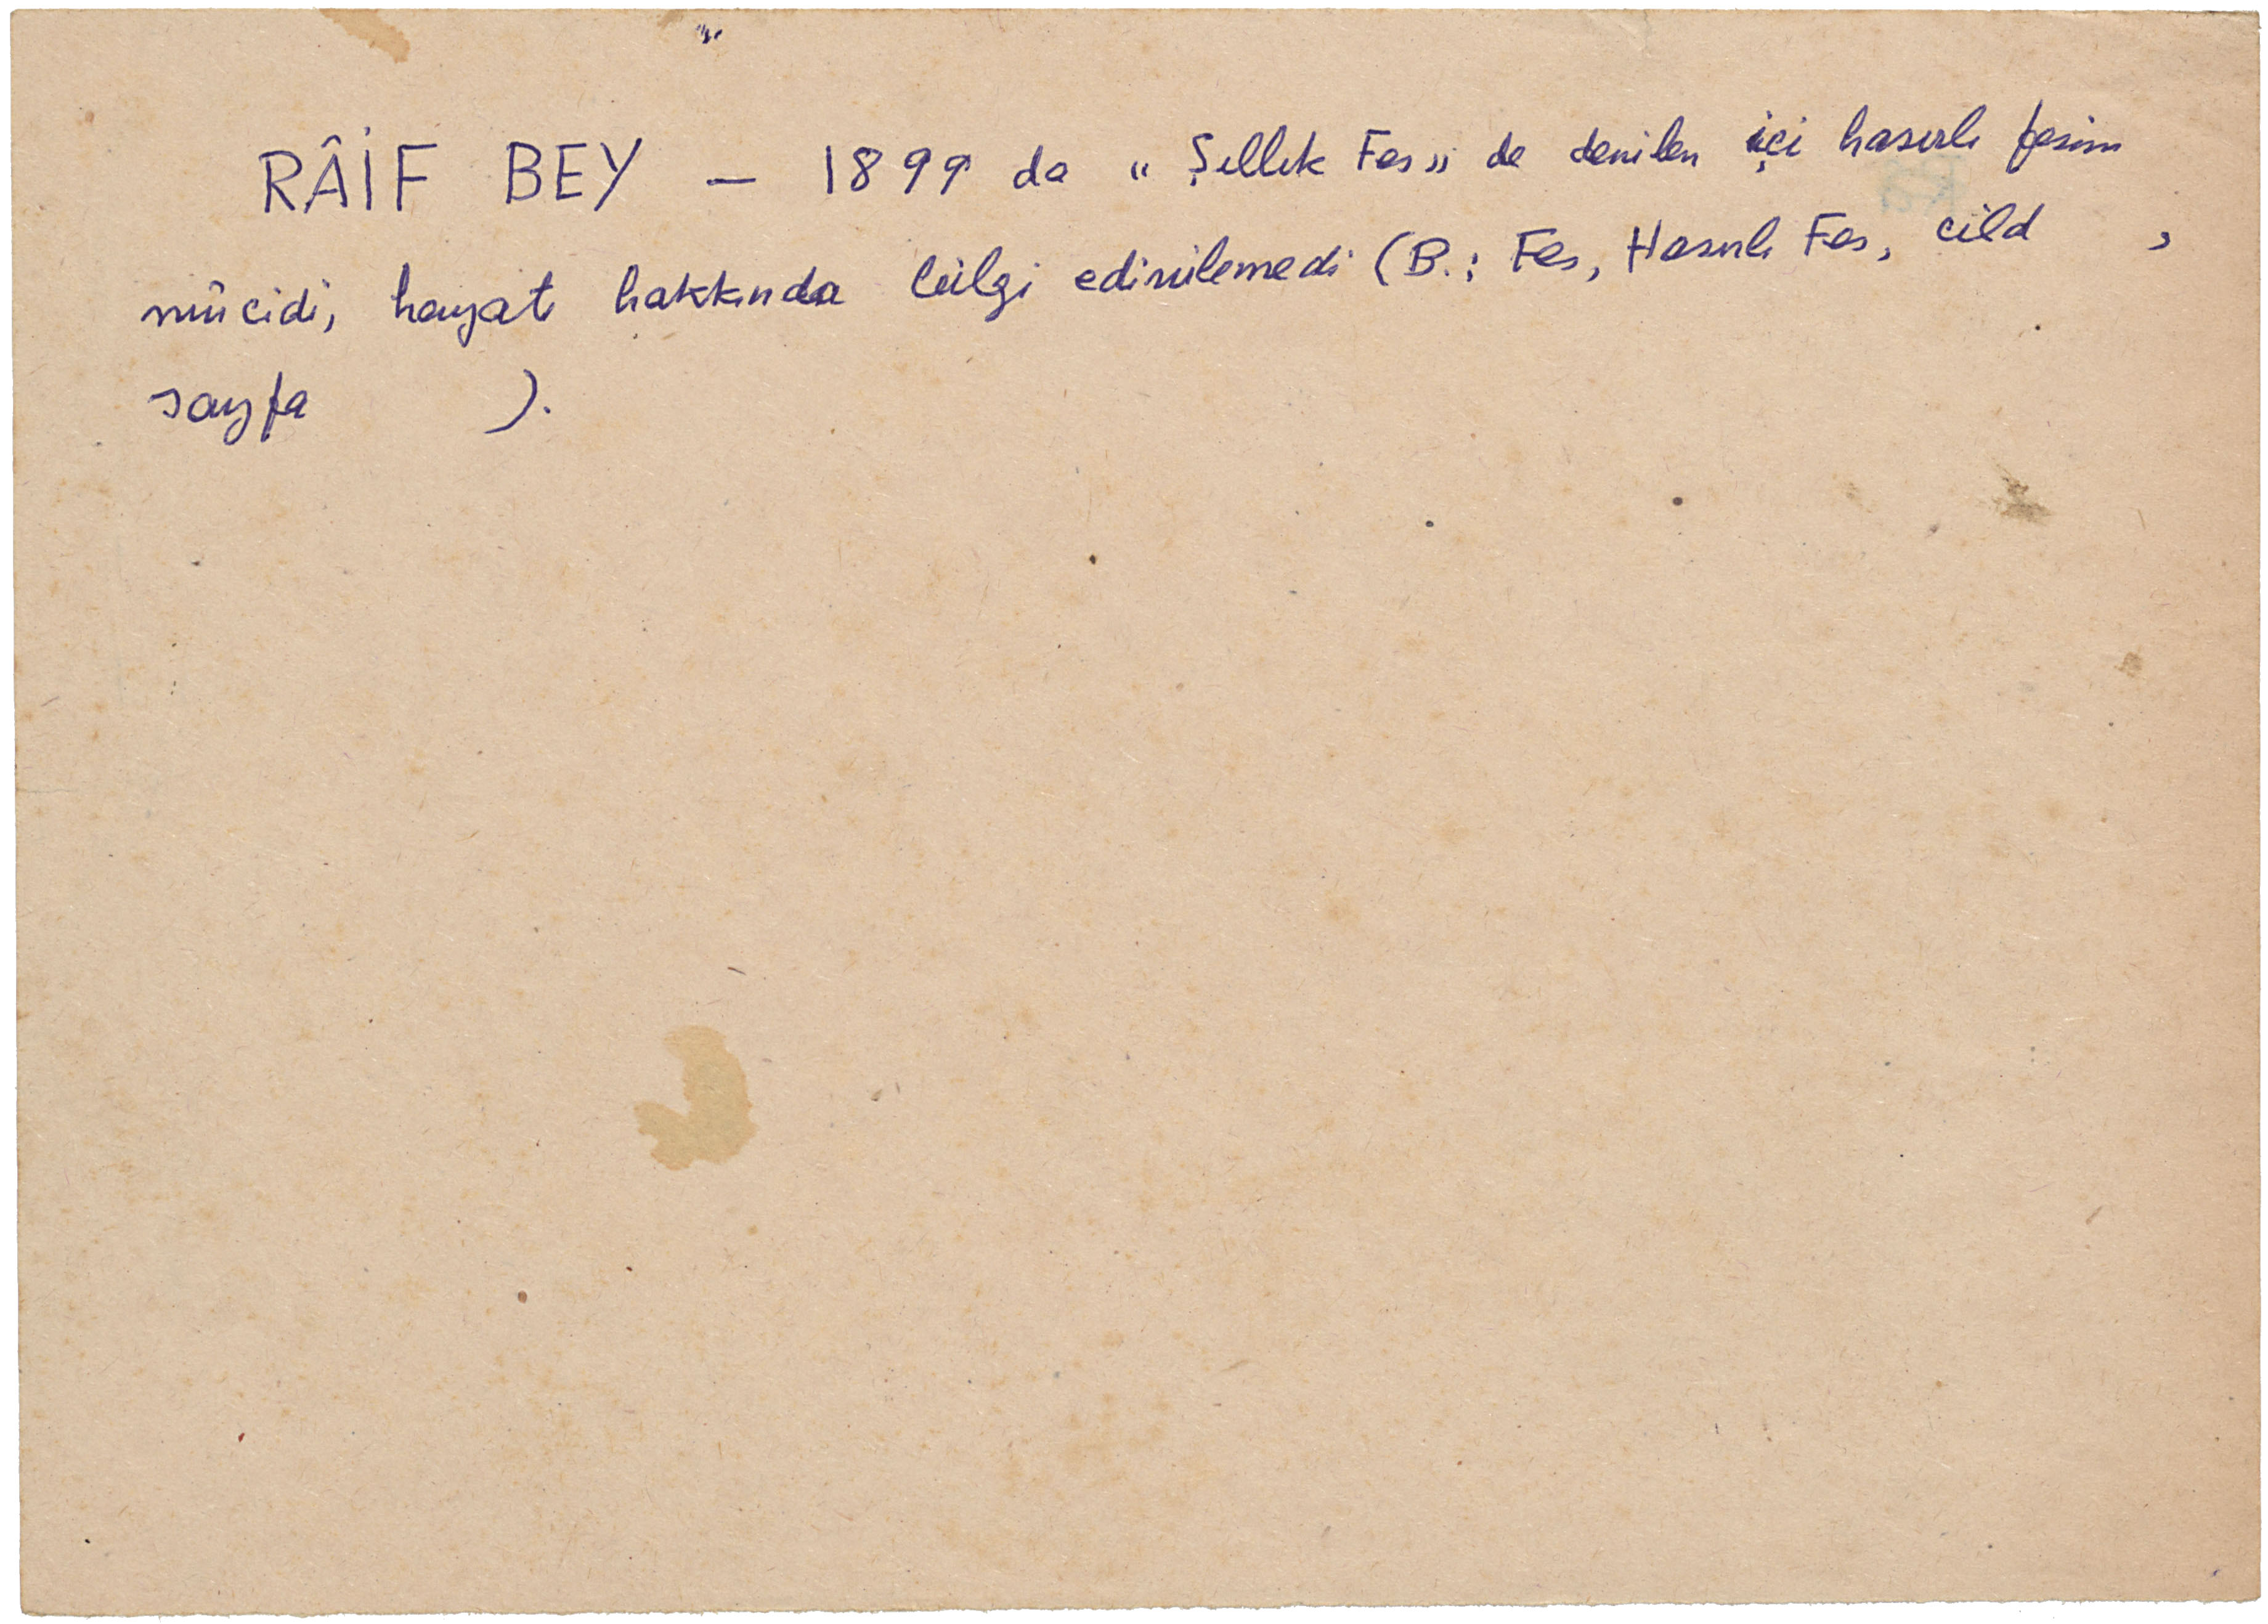 RÂİF BEY — 1899 da "Şıllık Fes" de denilen içi hasırlı fesin
mûcidi, hayatı hakkında bilgi edinilemedi (B.: Fes, Hasırlı Fes, cild ,
sayfa ).